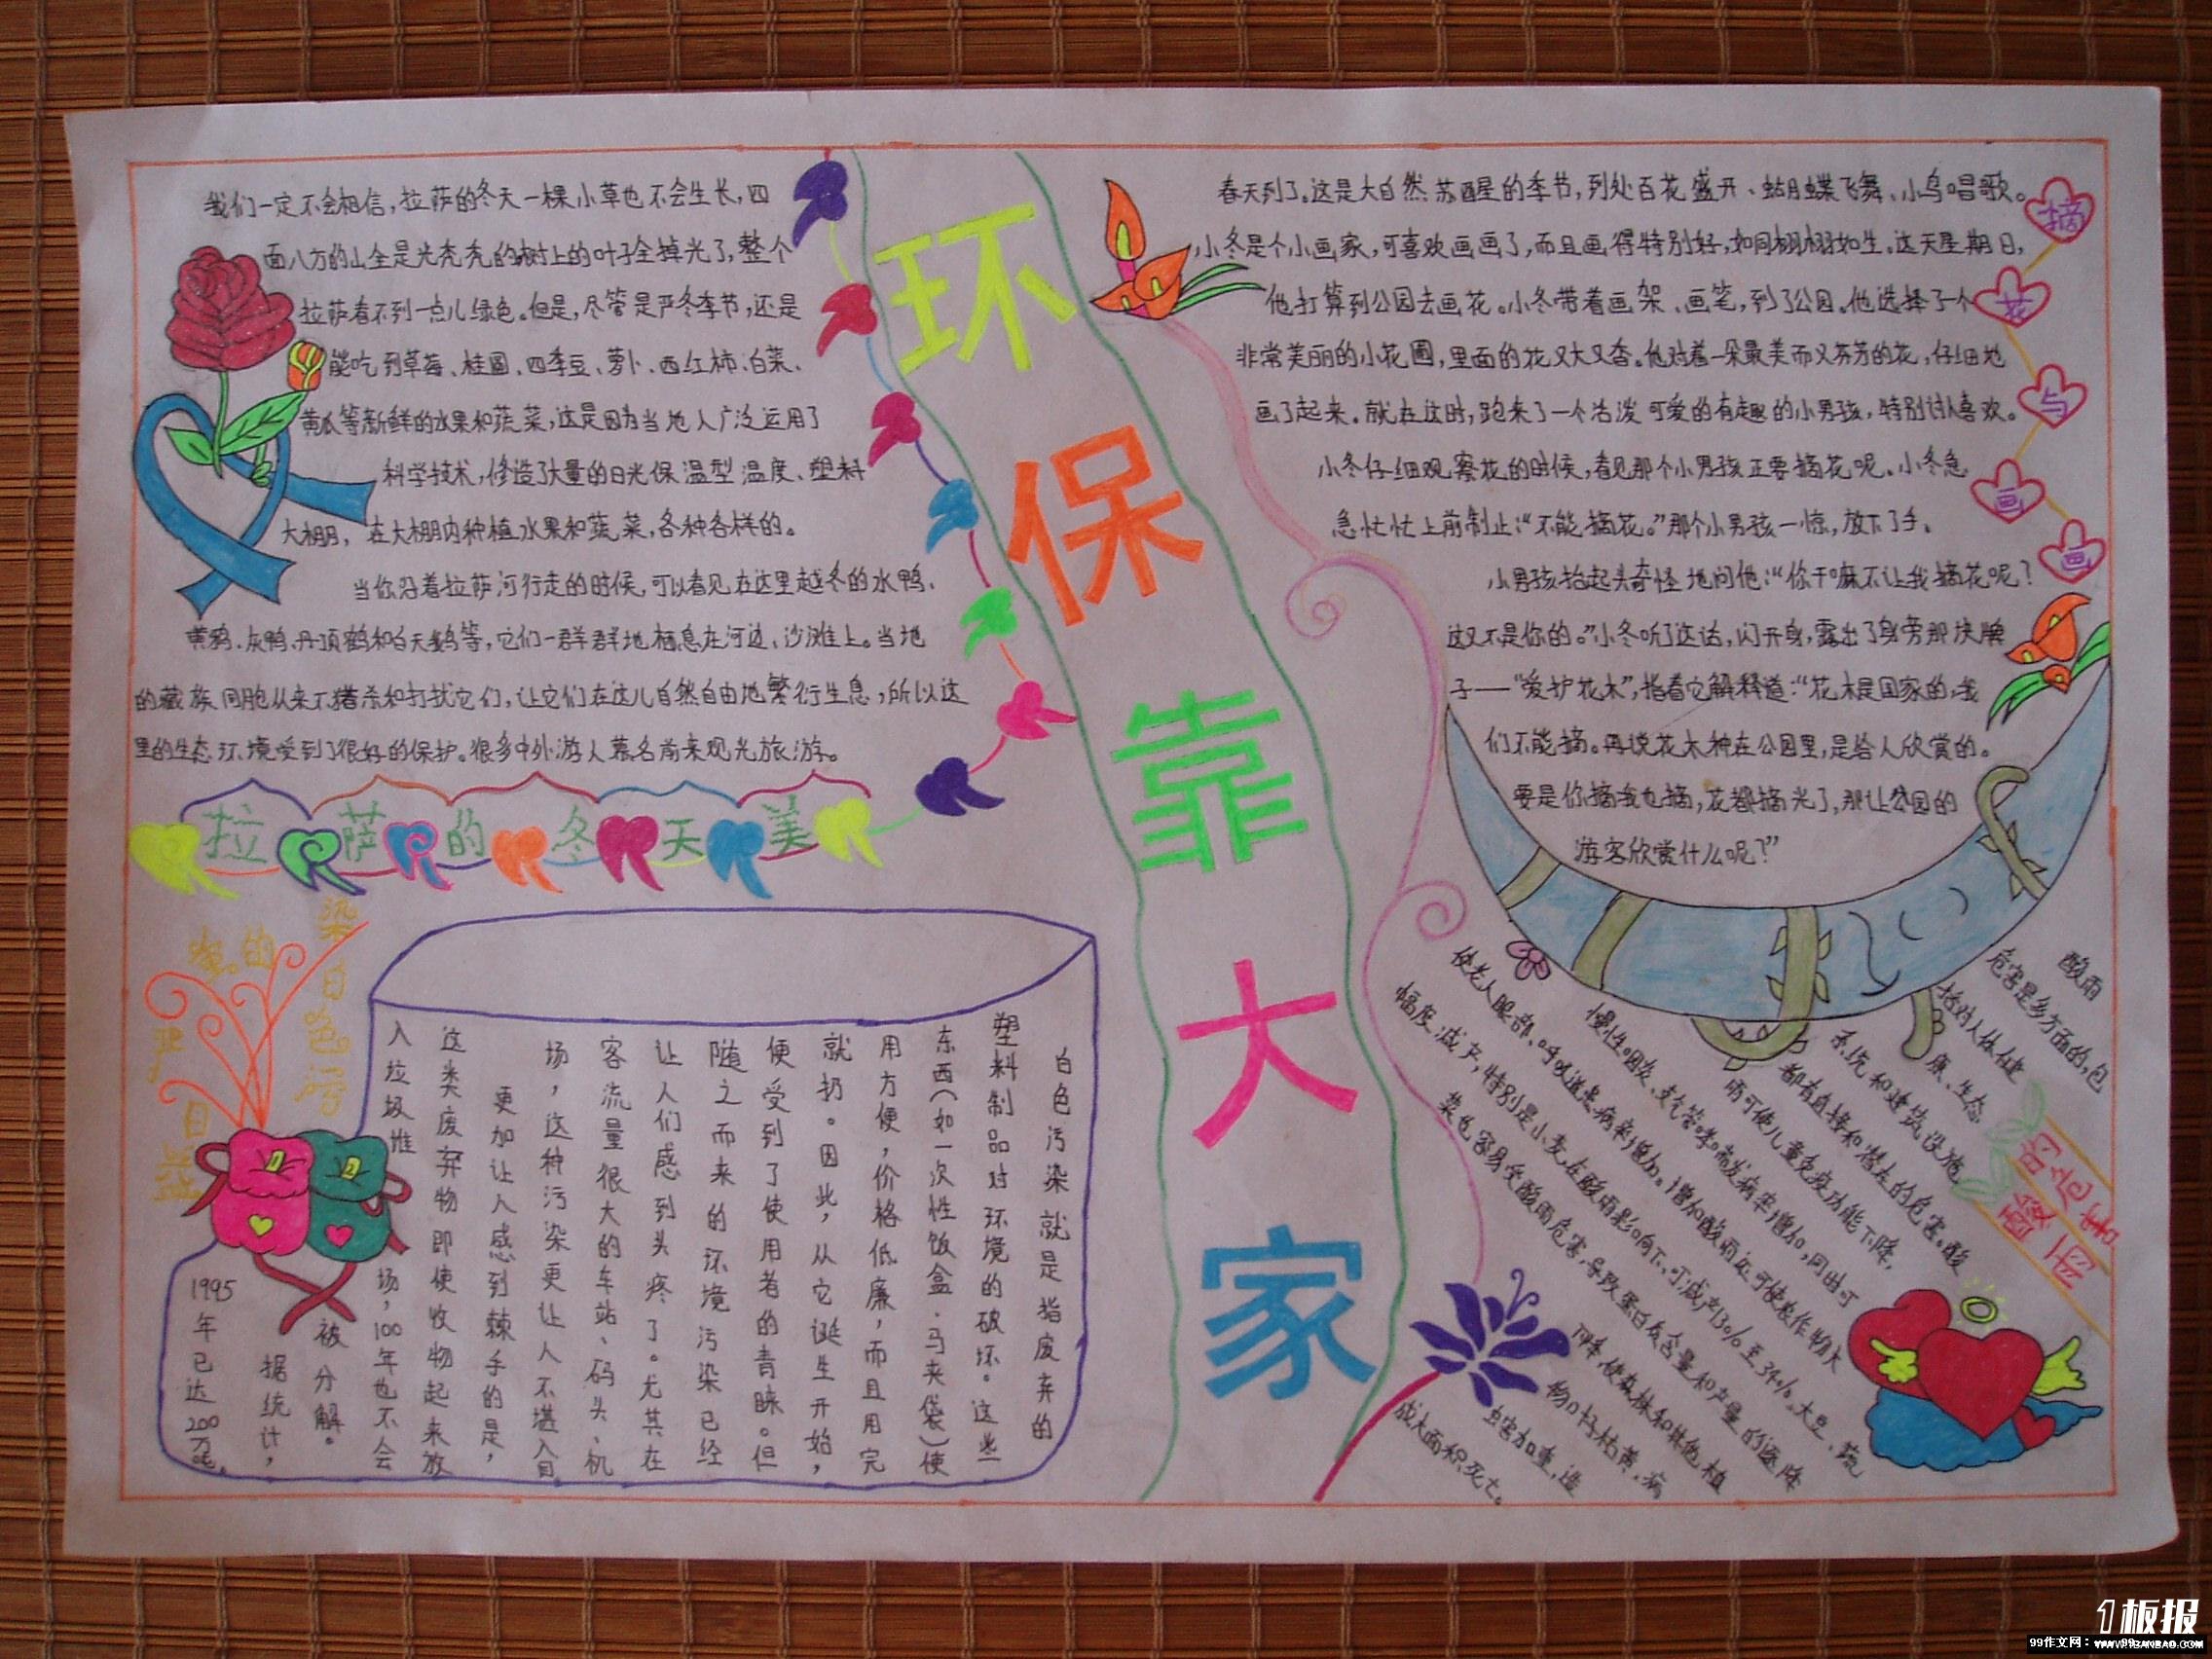 环保靠大家
我们一定不会相信,拉萨的冬天一棵小草也不会生长,四
面八方的山全是光秃秃的树上的叶子全掉光了,整个
拉萨看不到一点儿绿色。但是,尽管是严冬季节,还是
能吃到草莓、桂圆、四季豆、萝卜、西红柿、白菜、
黄瓜等新鲜的水果和蔬菜,这是因为当地人广泛运用了
科学技术,修造了大量的日光保温型温度、塑料
大棚,在大棚内种植水果和蔬菜,各种各样的。
当你沿着拉萨河行走的时候,可以看见在这里越冬的水鸭、
黄鸦、灰鸭、丹顶鹤和白天鹅等,它们一群群地栖息在河边、沙滩上。当地
的藏族同胞从来不猎杀和打扰它们,让它们在这儿自然自由地繁衍生息,所以这
里的生态环境受到了很好的保护。很多中外游人慕名前来观光旅游。
拉萨的冬天美
春天到了。这是大自然苏醒的季节,到处百花盛开、蝴蝶飞舞、小鸟唱歌。
小冬是个小画家,可喜欢画画了,而且画得特别好,如同栩栩如生。这天星期日,
他打算到公园去画花。小冬带着画架、画笔,到了公园。他选择了一个
非常美丽的小花圃,里面的花又大又香。他对着一朵最美而又芬芳的花,仔细地
画了起来。就在这时,跑来了一个活泼可爱的有趣的小男孩,特别讨人喜欢。
小冬仔细观察花的时候,看见那个小男孩正要摘花呢。小冬急
急忙忙上前制止:“不能摘花。”那个小男孩一惊,放下了手。
小男孩抬起头奇怪地问他:“你干嘛不让我摘花呢?
这又不是你的。”小冬听了这话,闪开身,露出了身旁那块牌
子——“爱护花木”,指着它解释道:“花木是国家的,我
们不能摘。再说花木种在公园里,是给人欣赏的。
要是你摘我也摘,花都摘光了,那让公园的
游客欣赏什么呢?”
摘花与画画
日益严
的
染
白色污
白色污染就是指废弃的
塑料制品对环境的破坏。这些
东西(如一次性饭盒.马夹袋)使
用方便,价格低廉,而且用完
就扔。因此,从它诞生开始,
便受到了使用者的青睐。但
随之而来的环境污染已经
让人们感到头疼了。尤其在
客流量很大的车站、码头、机
场,这种污染更让人不堪入目。
更加让人感到棘手的是,
这类废弃物即使收物起来放
入垃圾堆
场,100年也不会
被分解。
据统计,
1995年已达200万吨。
酸雨的危害
酸雨
危害是多方面的,包
括对人体健
康、生态
系统和建筑设施
都有直接和潜在的危害。酸
雨可使儿童免疫功能下降,
慢性咽炎、支气管哮喘发病率增加,同时可
使老人眼部、呼吸道患病率增加。增加酸雨还可使农作物大
幅度减产,特别是小麦,在酸雨影响下,可减产13%至34%。大豆、蔬
菜也容易受酸雨危害,导致蛋白质含量和产量的逐降
下降,使森林和其他植
物叶子枯黄,病
虫害加重,造
成大面积死亡。
1板报
WWW.1BANBAO.COM